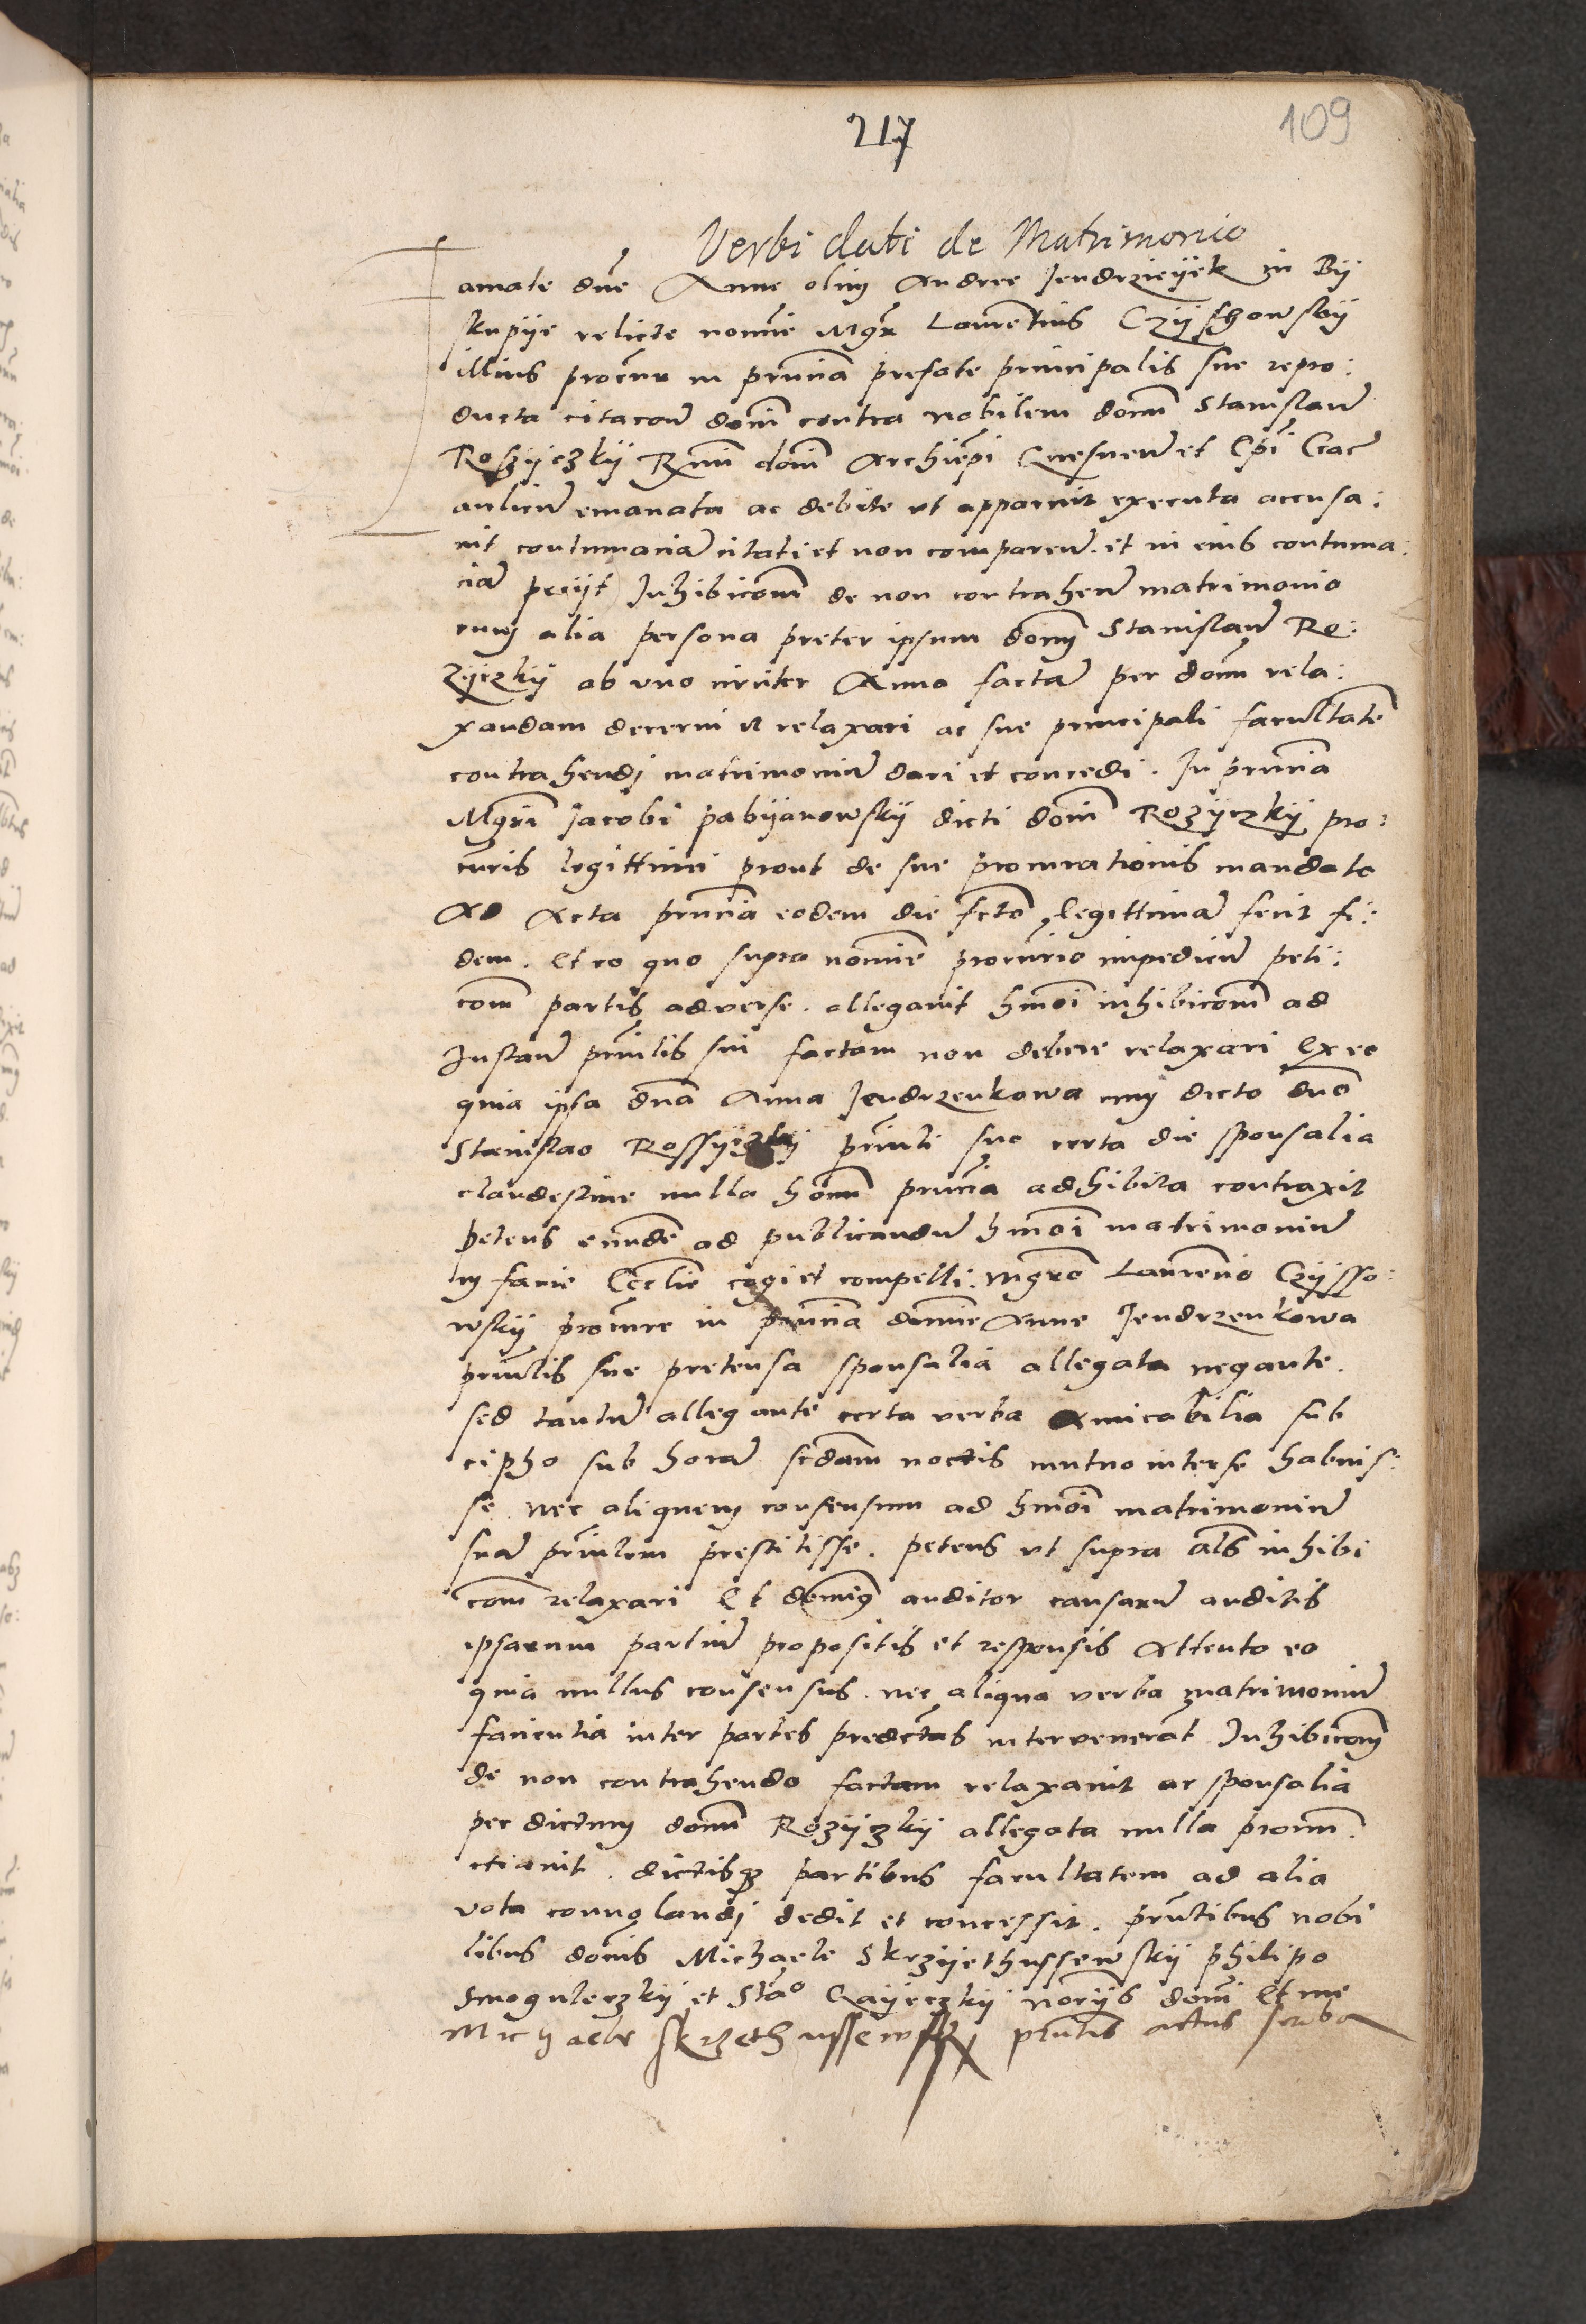 217
109
Verbi dati de Matrimonio
Famate dne Anne olim Andree Jendrzeyek in By
skupye relicte nomine Mgr Laurentius Czyschowsky
illius procur in pruncia prefate principalis sue repro:
ducta citacone domi contra nobilem domi Stanislaum
Roszyczky Rmi domi Archiepi Gnesnen et Epi Crac
aulicum emanata ac debite ut apparuit executa accusa:
uit contumaciam citati et non comparen. et in eius contuma:
ciam peciyt Inhibicom de non contrahen matrimonio
cum alia persona preter ipsum domi Stanislaum Ro:
zyczky ab uno circiter Anno factam per domi rela:
xandam decerni et relaxari ac sue principali facultate
contrahendi matrimonium dari et concedi. In pruncia
Mgri Jacobi pabyanowsky dicti domi Rozyczky pro:
curis legittimi prout de sue procurationis mandato
Ad Acta pruncia eodem die fcto legittimam fecit fi:
dem. Et eo quo supra nomine procurio impedien peti:
com partis adverse. allegavit hmoi inhibicom ad
Instan prinlis sui factam non debere relaxari Ex eo
quia ipsa dna Anna Jendrzeykowa cum dicto dno
Stanislao Rossyczky prinli suo certa die sponsalia
clandestine nulla homi pruncia adhibita contraxit
petens eande ad publicandum hmoi matrimonium
in facie Ecclie cogi et compelli. Mgro Laurencio Czysso:
wsky procure in pruncia domine Anne Jendrzeykowa
prinlis sue pretensa sponsalia allegata negante.
sed tantum allegante certa verba amicabilia sub
cipho sub horam scdam noctis mutuo inter se habuis:
se. nec aliquem consensum ad hmoi matrimonium
suam prinlem prestitisse. petens ut supra als inhibi
com relaxari Et dominus auditor causarum auditis
ipsarum partium propositis et responsis Attento eo
quia nullus consensus. nec aliqua verba matrimonium
facientia inter partes predictas intervenerat Inhibicom
de non contrahendo factam relaxavit ac sponsalia
per dictum domi Rozyczky allegata nulla pronun
ctiavit. dictisque partibus facultatem ad alia
vota convolandi dedit et concessit. pruntibus nobi
libus domis Michaele Skrzyethussewsky philipo
Smoguleczky et Stao Gayeczky noriys domi Et me
Michaele Skrzethussewsky pruntis actus scriba